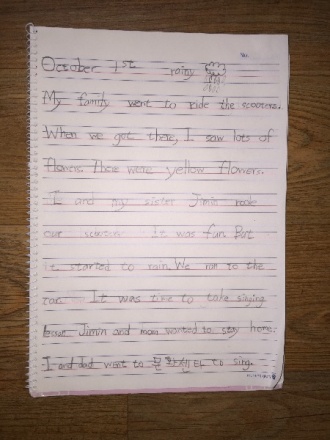 October 1st rainy
My family went to ride the scooters.
When we got there, I saw lots of
flowers. There were yellow flowers.
I and my sister Jimin rode
our scooter. It was fun. But
it started to rain. We ran to the
car. It was time to take singing
Jimin and mom wanted to stay home.
I and dad went to 문화센터 to sing.